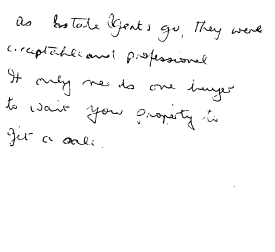 as Estate Agents go, they were
acceptable and professional
It only needs one buyer
to want your property to
get a sale.